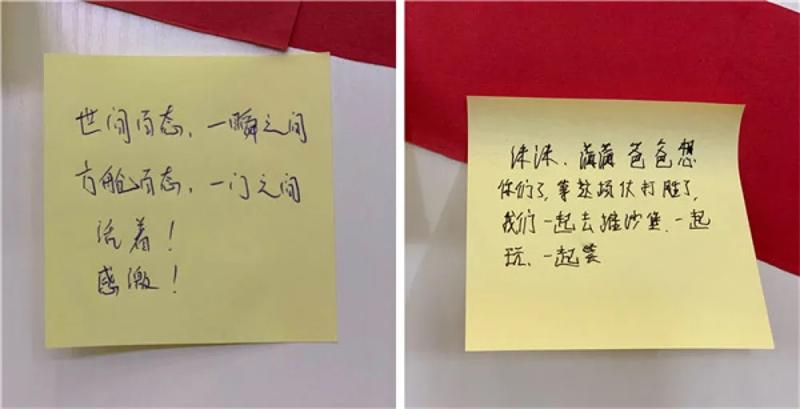 世间百态，一瞬之间
方舱百态，一门之间
活着！
感激！
沫沫、满满爸爸想
你们了，等这场仗打胜了，
我们一起去堆沙堡、一起
玩、一起笑